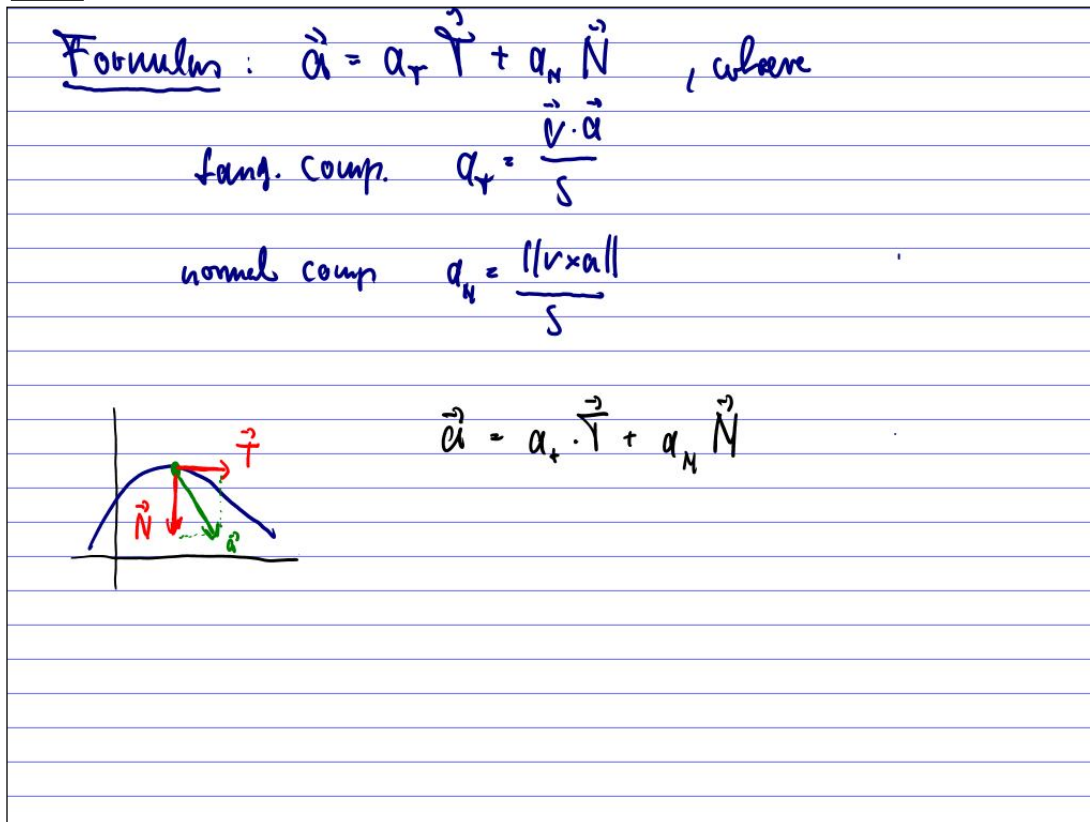 Formulas : a⃗ = a_T T⃗ + a_N N⃗ , where
tang. comp. a_T = (v⃗ · a⃗) / s
normal comp a_N = ||v × a|| / s
a⃗ = a_t · T⃗ + a_N N⃗
T⃗
N⃗
a⃗